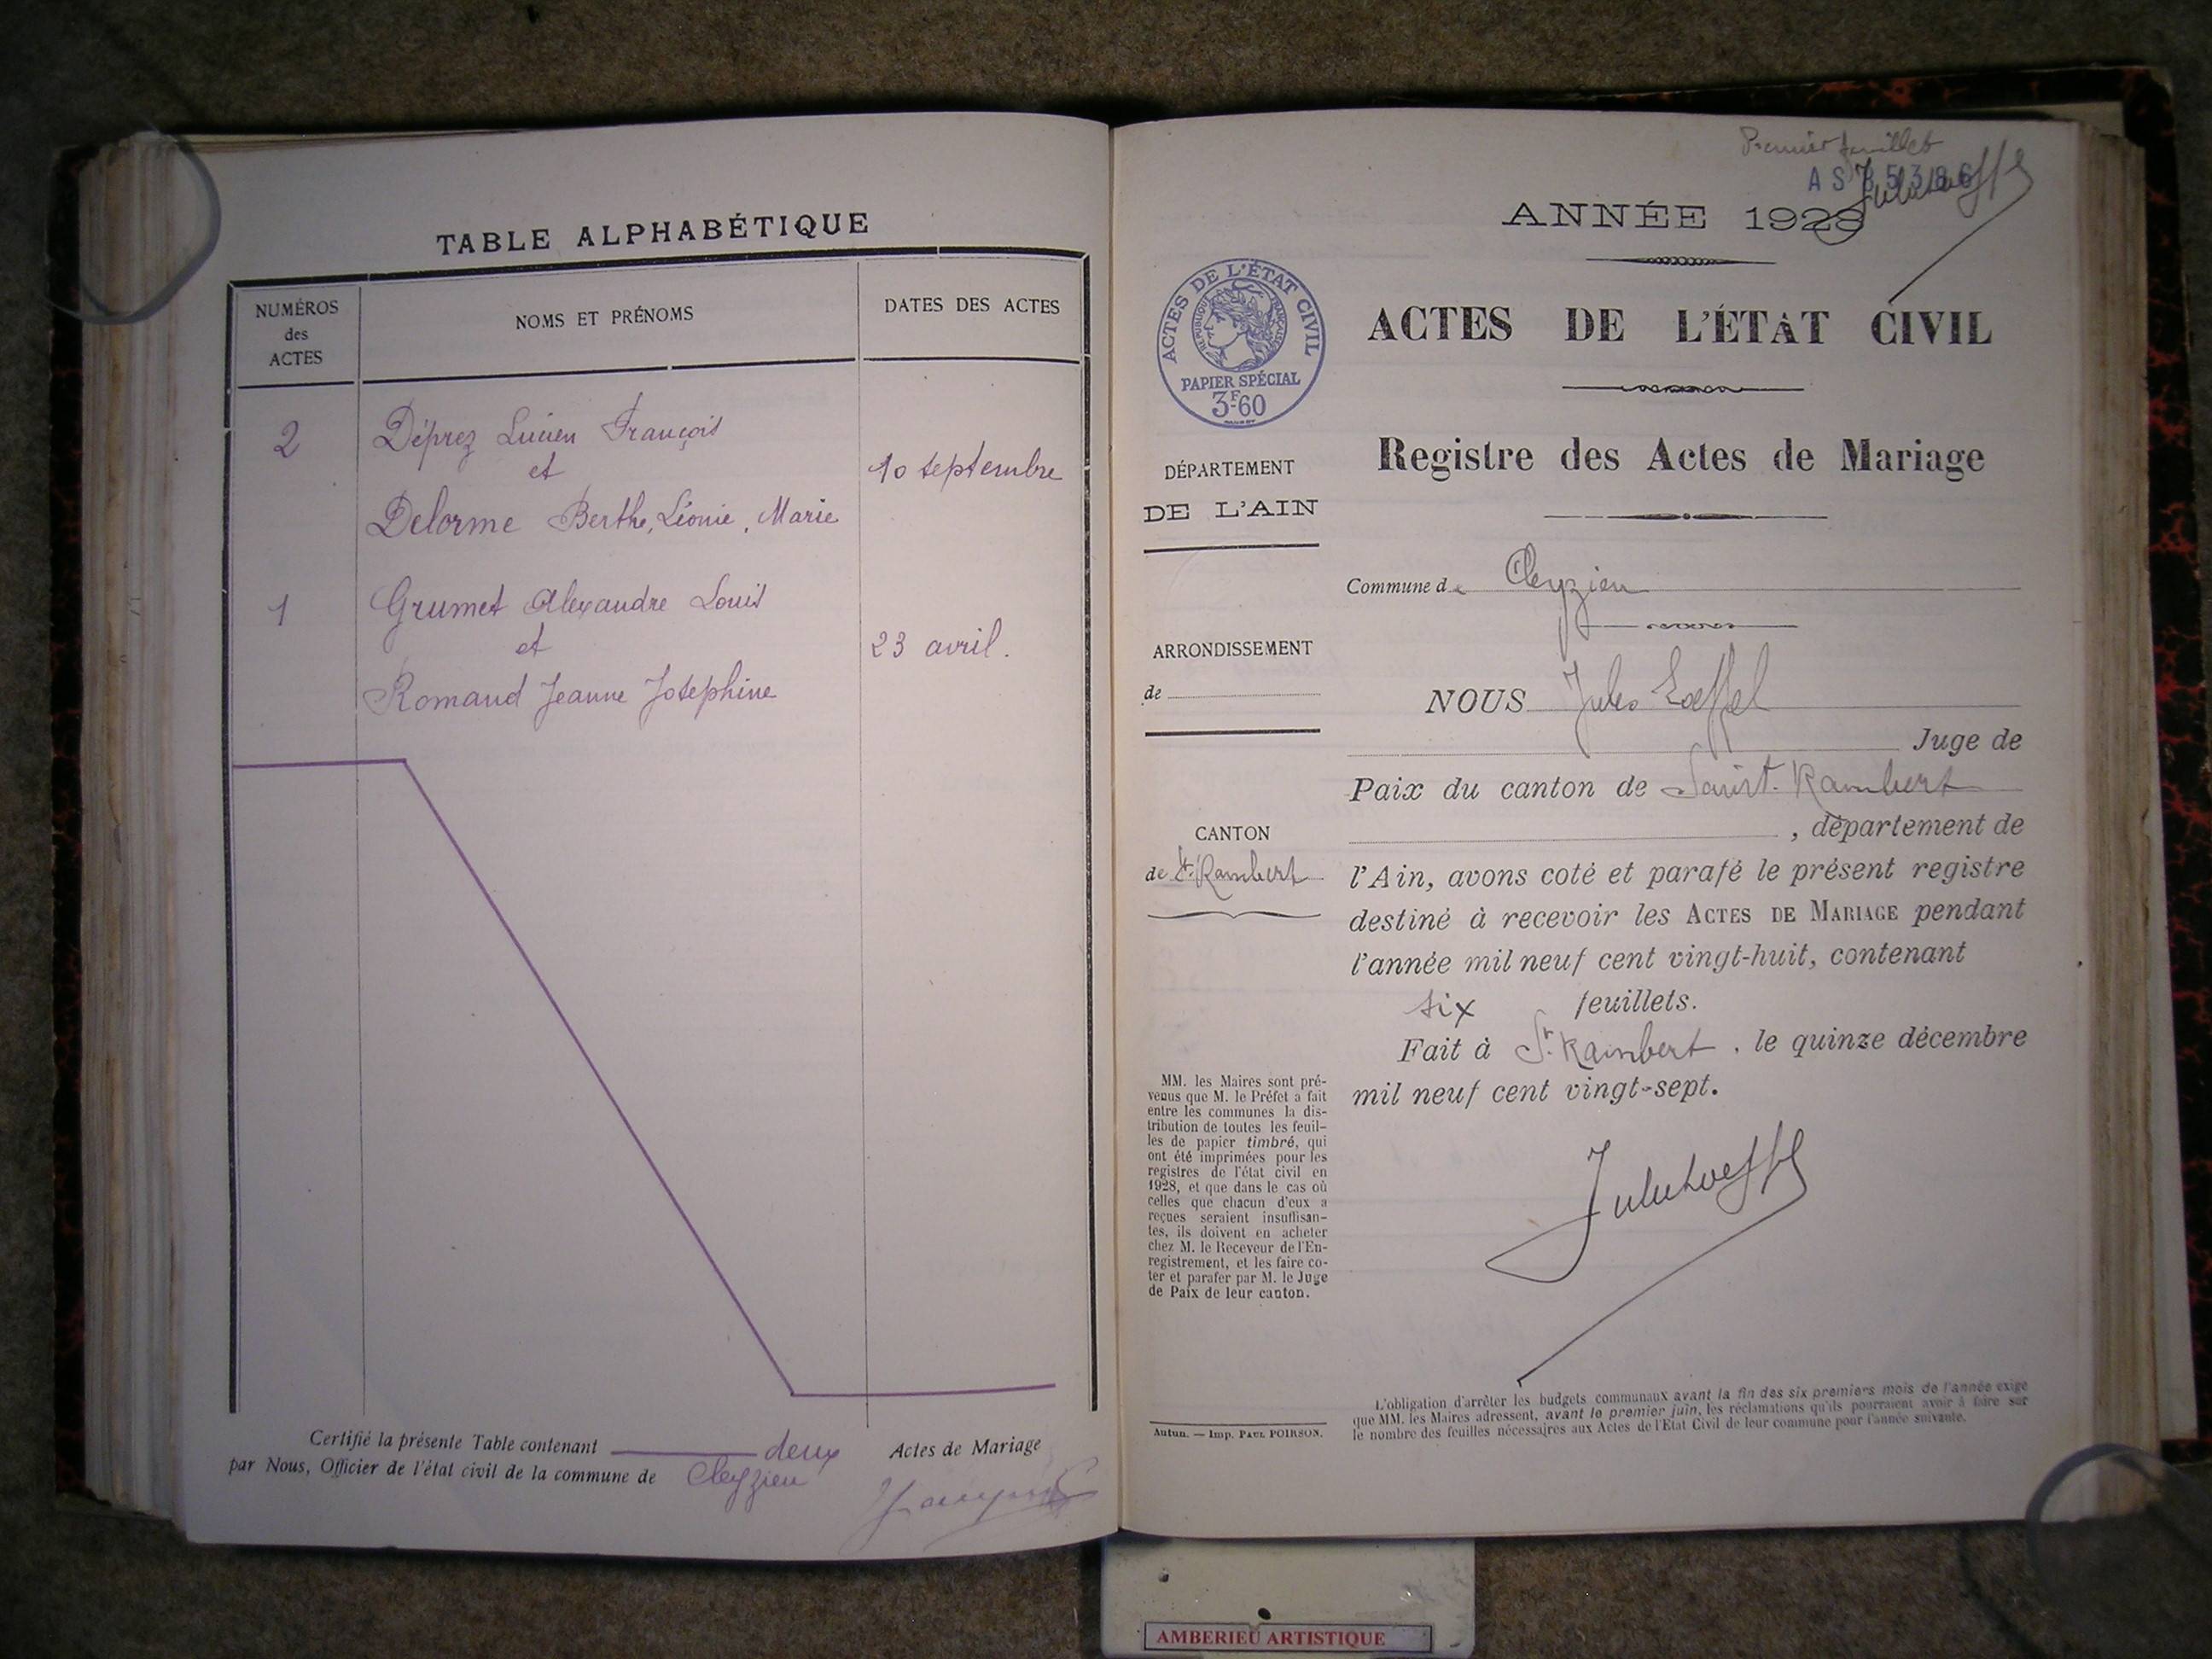 TABLE ALPHABÉTIQUE
NUMÉROS
des
ACTES
NOMS ET PRÉNOMS
DATES DES ACTES
2
Déprez Lucien François
et
Delorme Berthe, Léonie, Marie
10 septembre
1
Grumet Alexandre Louis
et
Romand Jeanne Josephine
23 avril.
Certifié la présente Table contenant deux Actes de Mariage
par Nous, Officier de l'état civil de la commune de Cleyzieu
Premier feuillet
ANNÉE 1928
ACTES DE L'ÉTAT CIVIL
RÉPUBLIQUE FRANÇAISE
PAPIER SPÉCIAL
3F60
ACTES DE L'ÉTAT CIVIL
Registre des Actes de Mariage
DÉPARTEMENT
DE L'AIN
Commune de Cleyzieu
ARRONDISSEMENT
de
NOUS Jules Loeffel
Juge de
Paix du canton de Saint-Rambert
, département de
CANTON
de St. Rambert
l'Ain, avons coté et parafé le présent registre
destiné à recevoir les ACTES DE MARIAGE pendant
l'année mil neuf cent vingt-huit, contenant
six feuillets.
Fait à St. Rambert, le quinze décembre
mil neuf cent vingt-sept.
MM. les Maires sont pré-
venus que M. le Préfet a fait
entre les communes la dis-
tribution de toutes les feuil-
les de papier timbré, qui
ont été imprimées pour les
registres de l'état civil en
1928, et que dans le cas où
celles que chacun d'eux a
reçues seraient insuffisan-
tes, ils doivent en acheter
chez M. le Receveur de l'En-
registrement, et les faire co-
ter et parafer par M. le Juge
de Paix de leur canton.
Autun. — Imp. PAUL POIRSON.
L'obligation d'arrêter les budgets communaux avant la fin des six premiers mois de l'année exige
que MM. les Maires adressent, avant le premier juin, les réclamations qu'ils pourraient avoir à faire sur
le nombre des feuilles nécessaires aux Actes de l'Etat Civil de leur commune pour l'année suivante.
AMBERIEU ARTISTIQUE